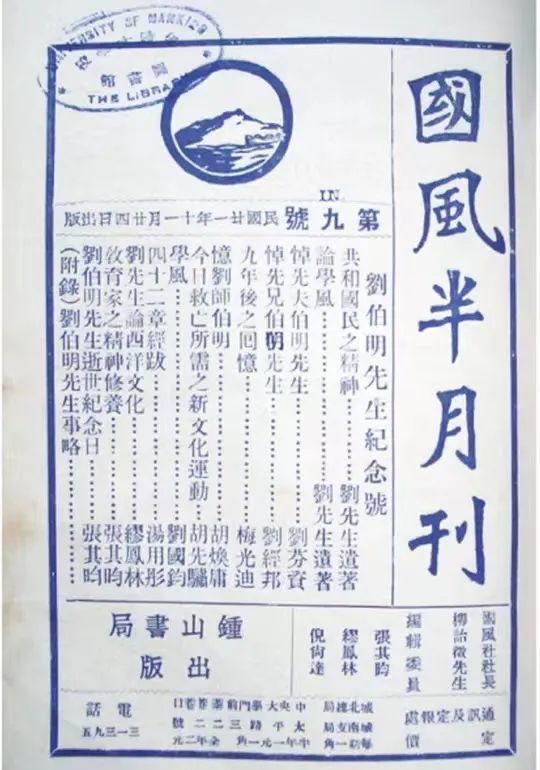 UNIVERSITY OF NANKING
圖書館
THE LIBRARY
國風半月刊
IN
第九號 民國廿一年十一月廿四日出版
劉伯明先生紀念號
共和國民之精神…………劉先生遺著
論學風…………劉先生遺著
悼先夫伯明先生…………劉芬資
悼先兄伯明先生…………劉經邦
九年後之回憶…………梅光迪
憶劉師伯明…………胡煥庸
今日救亡所需之新文化運動…………胡先驌
學風…………劉國鈞
四十二章經跋…………湯用彤
劉先生論西洋文化…………繆鳳林
教育家之精神修養…………張其昀
劉伯明先生逝世紀念日…………張其昀
(附錄)劉伯明先生事略
國風社社長
柳詒徵先生
編輯委員
張其昀
繆鳳林
倪尙達
鍾山書局
出版
通訊及定報處
定價
城北總局 中央大學門前
城南支局 太平路三二二號
每期一角 半年一元一角 全年二元
電話
三一三九五